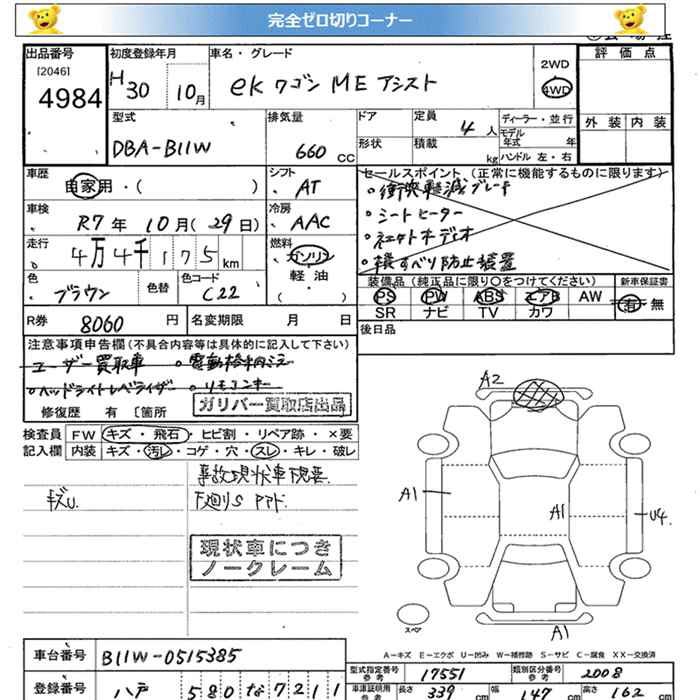 完全ゼロ切りコーナー
出品番号 初度登録年月 車名・グレード 2WD 評価点
[2046] 4984 H30 10月 ekワゴン ME アシスト 4WD
型式 排気量 ドア 定員 4人 ディーラー・並行 外装 内装
DBA-B11W 660 CC 形状 積載 kg モデル年式 年
ハンドル 左・右
車歴 自家用・( ) シフト AT セールスポイント (正常に機能するものに限ります)
車検 R7年10月(29日) 冷房 AAC ・衝突軽減ブレーキ
・シートヒーター
走行 4万4千175km 燃料 ガソリン ・ネエクトオーディオ
軽油 ・横すべり防止装置
色 ブラウン 色替 色コード C22 ( )
装備品 (純正品に限り○をつけてください) 新車保証書
PS PW ABS エアB AW 有・無
SR ナビ TV カワ
R券 8060円 名変期限 月 日 後日品
注意事項申告欄(不具合内容等は具体的に記入して下さい)
ユーザー買取車 ・電動格納ミラー
・ヘッドライトレベライザー ・リモコンキー
修復歴 有 〔箇所 ガリバー買取店出品
検査員 FW キズ・飛石・ヒビ割・リペア跡・×要
記入欄 内装 キズ・汚レ・コゲ・穴・スレ・キレ・破レ
事故現状車
キズU. 下廻りS
現状車につき
ノークレーム
A2
A1 A1 U4
A1
スペア
A－キズ E－エクボ U－凹み W－補修跡 S－サビ C－腐食 XX－交換済
車台番号 B11W-0515385
型式指定番号 参考 17551 類別区分番号 参考 2008
登録番号 八戸 580 な 7211
車庫証明用 参考 長さ 339cm 幅 147cm 高さ 182cm